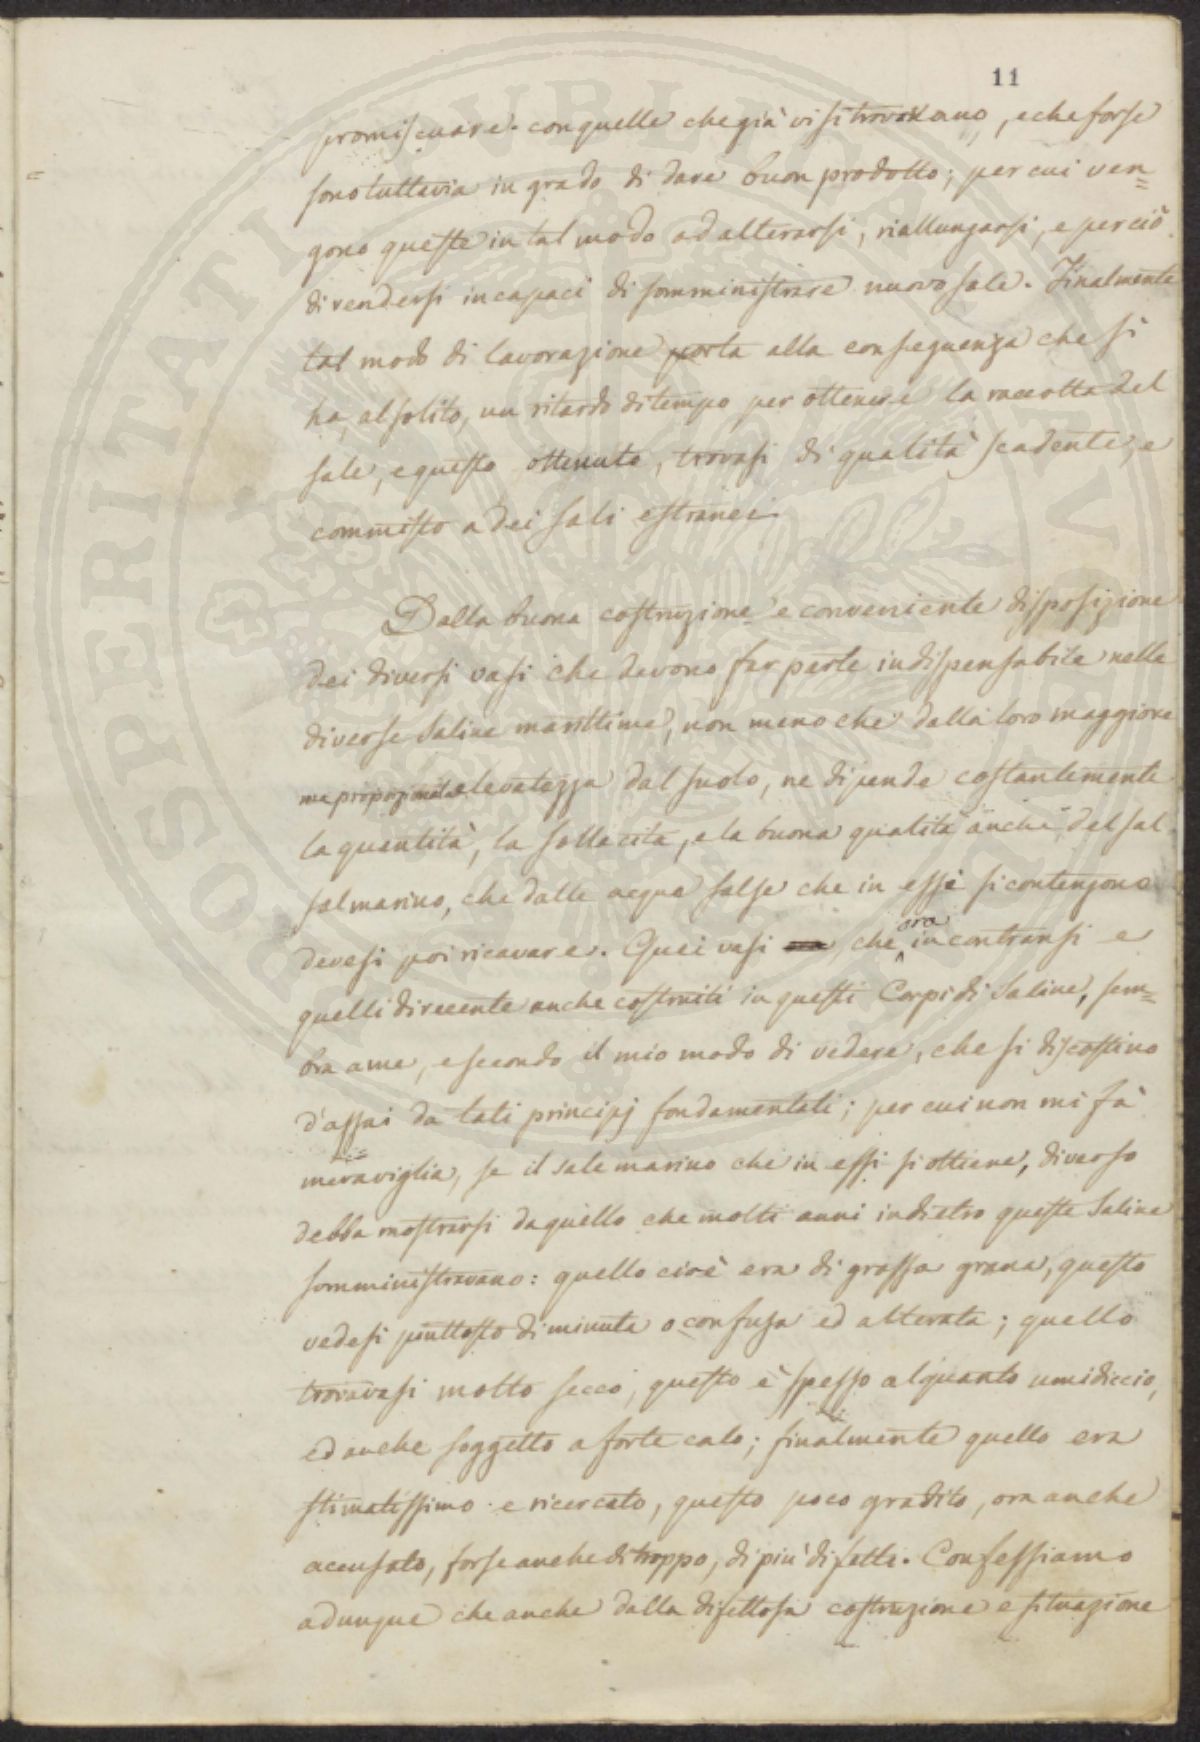 11
promiscuare con quelle che già vi si trovavano, e che forse
sono tuttavia in grado di dare buon prodotto; per cui ven=
gono queste in tal modo ad alterarsi, riallungarsi, e perciò
di rendersi incapaci di somministrare nuovo sale. Finalmente
tal modo di lavorazione porta alla conseguenza che si
ha, al solito, un ritardo di tempo per ottenere la raccolta del
sale, e questo ottenuto, trovasi di qualità scadente, e
commisto a dei sali estranei.
Dalla buona costruzione e conveniente disposizione
dei diversi vasi che devono far parte indispensabile nelle
diverse Saline marittime, non meno che dalla loro maggiore
ma proporzionata elevatezza dal suolo, ne dipende costantemente
la quantità, la sollecita, e la buona qualità anche, del sal
sal marino, che dalle acque salse che in essi si contengono
devesi poi ricavare. Quei vasi, che ora incontransi e
quelli di recente anche costruiti in questi Corpi di Saline, sem=
bra a me, e secondo il mio modo di vedere, che si discostino
d'assai da tali principj fondamentali; per cui non mi fà
meraviglia, se il sale marino che in essi si ottiene, diverso
debba mostrarsi da quello che molti anni indietro queste Saline
somministravano: quello cioè era di grossa grana, questo
vedesi piuttosto di minuta o confusa ed alterata; quello
trovavasi molto secco, questo è spesso alquanto umidiccio,
ed anche soggetto a forte calo; finalmente quello era
stimatissimo e ricercato, questo poco gradito, ora anche
accusato, forse anche di troppo, di più difetti. Confessiamo
adunque che anche dalla difettosa costruzione e situazione
PROSPERITATI PUBLICAE